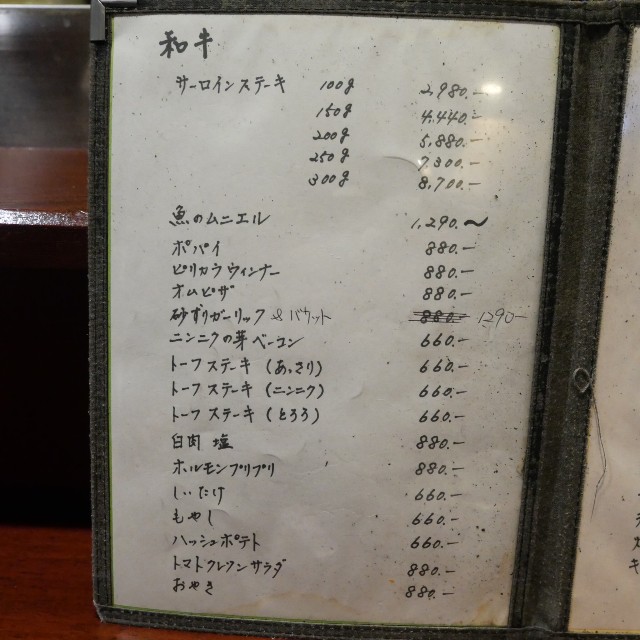 和牛
サーロインステーキ 100g 2,980.-
150g 4,440.-
200g 5,880.-
250g 7,300.-
300g 8,700.-
魚のムニエル 1,290.~
ポパイ 880.-
ピリカラウィンナー 880.-
オムピザ 880.-
砂ずりガーリック & バケット 880.- 1290-
ニンニクの芽ベーコン 660.-
トーフステーキ (あっさり) 660.-
トーフステーキ (ニンニク) 660.-
トーフステーキ (とろろ) 660.-
白肉 塩 880.-
ホルモンプリプリ 880.-
しいたけ 660.-
もやし 660.-
ハッシュポテト 660.-
トマトクレソンサラダ 880.-
おやき 880.-